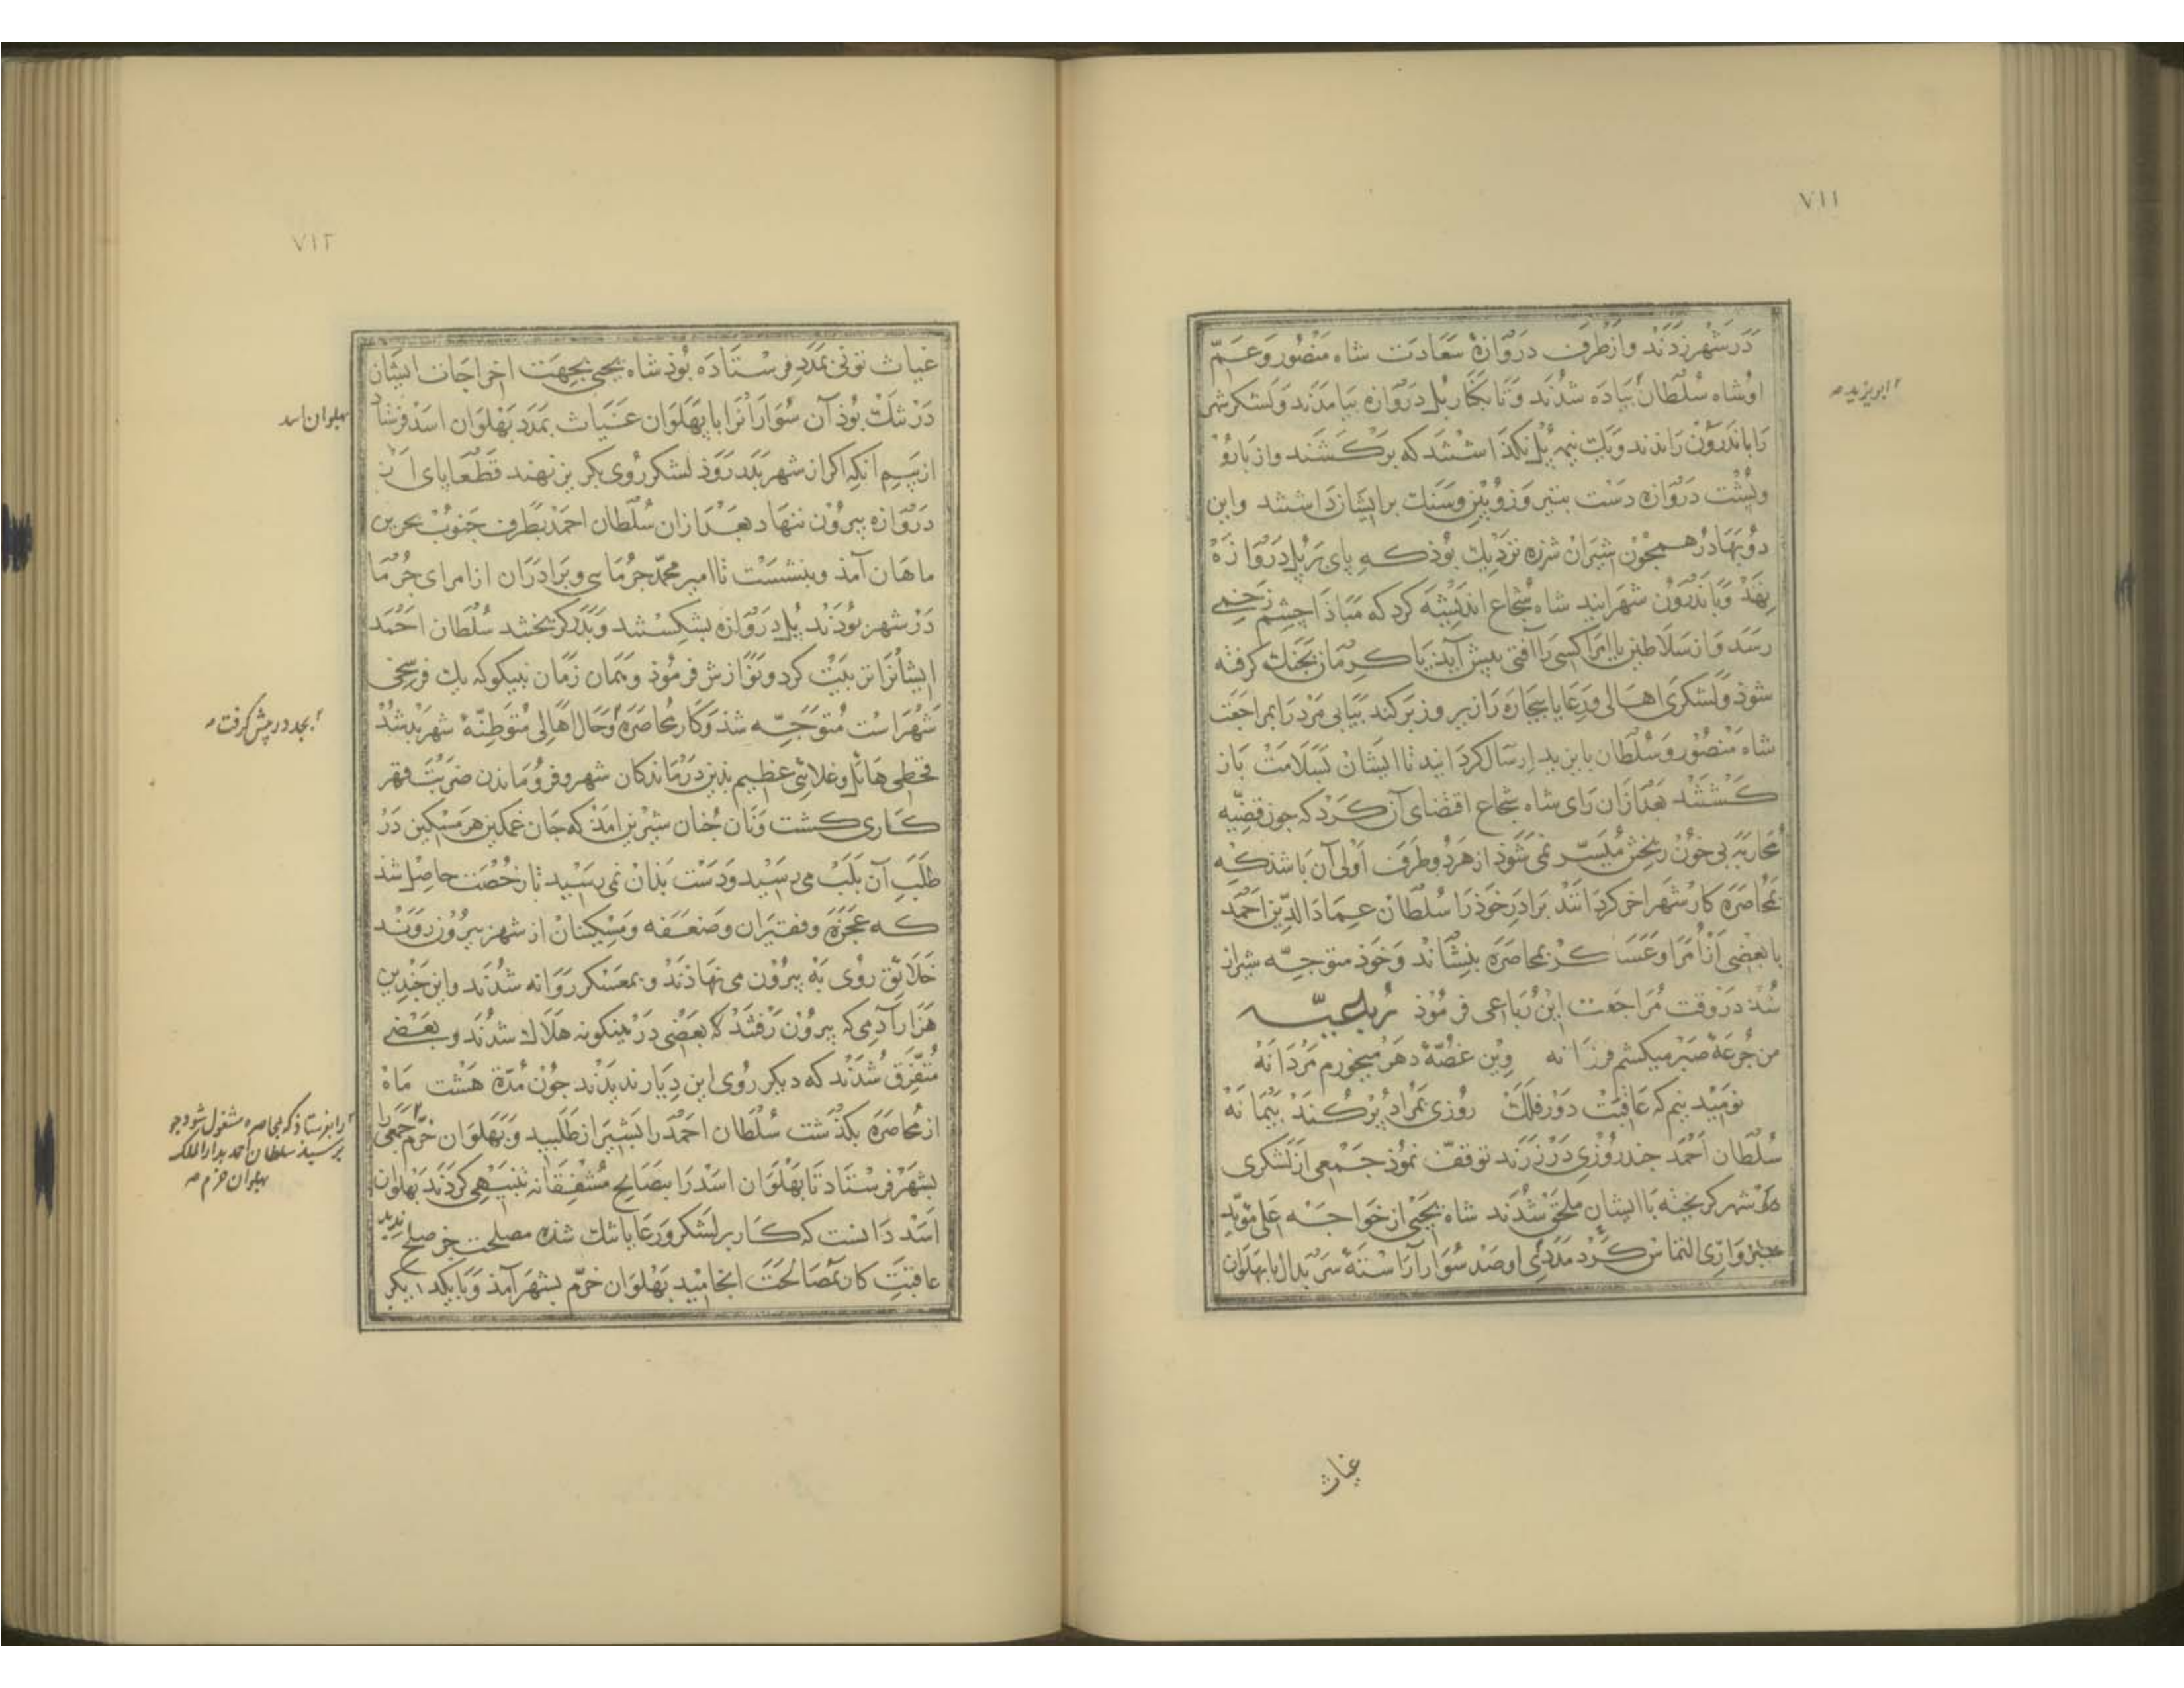 ٧١١
در شهر زدند و از طرف دروازهٔ سعادت شاه منصور و عمّ
او شاه سلطان پیاده شدند و تا بکنار پل دروازه بیامدند و لشکر شهر
را باندرون راندند و یک نیمه پل نکذاشتند که برکشند و از بارو
و پشت دروازه دست بتیر و زوبین و سنک بر ایشان داشتند و این
دو بهادر همجون شیران شرزه نزدیک بوذ که پای بر پل دروازه
نهند و باندرون شهر ایند شاه شجاع اندیشه کرد که مباذا چشم زخمی
رسد و از سلاطین یا امرا کسی را آفتی پیش آید یا کرمان بجنک کرفته
شوذ و لشکری اهالی و رعایا بیجاره را زیر و زبر کند بیابی مرد را بمراجعت
شاه منصور و سلطان بایزید ارسال کردانید تا ایشان بسلامت باز
کشتند بعد ازان رای شاه شجاع اقتضای آن کرد که جون قضیّه
محاربه بی خون ریختن میسّر نمی شوذ از هر دو طرف اولی آن باشذ که
بمحاصره کار شهر اخر کردانند برادر خوذ را سلطان عماد الدین احمد
با بعضی از امرا و عساکر بمحاصره بنشاند و خوذ متوجّه شیراز
شد در وقت مراجعت این رباعی فرموذ رباعیّه
من جرعهٔ صبر میکشم فرزانه وین غصّهٔ دهر میخورم مردانه
نومید نیم که عاقبت دور فلک روزی بمراد پر کند پیمانه
سلطان احمد جند روزی در زرند توقف نموذ جمعی از لشکری
شهر کریخته با ایشان ملحق شدند شاه یحیی از خواجه علی مؤید
سبزواری التماس کرد مددی او صد سوار آراسته سربدال با پهلوان
ابویزید
غیاث
٧١٢
غیاث تونی بمدد فرستاده بوذ شاه یحیی بجهت اخراجات ایشان
در تنک بوذ آن سوارانرا با پهلوان غیاث بمدد پهلوان اسد فرستاد
از بیم انکه اکر از شهر بدر روذ لشکر روی بکریز نهند قطعا پای از
دروازه بیرون ننهاد بعد ازان سلطان احمد بطرف جنوب بحرین
ماهان آمذ و بنشست تا امیر محمّد جرمایی و برادران از امرای جرما
در شهر بوذند پل دروازه بشکستند و بدر کریختند سلطان احمد
ایشانرا تربیت کرد و نوازش فرموذ و همان زمان بنیکوکه یک فرسخی
شهر است متوجّه شذ و کار محاصره و حال اهالی متوطنهٔ شهر بد شد
قحطی هائل و غلائی عظیم بدین درماندکان شهر و فروماندن ضربت قهر
کاری کشت و نان جنان شیرین امذ که جان غمکین هر مسکین در
طلب آن بلب می رسید و دست بذان نمی رسید تا رخصت حاصل شذ
که عجزه و فقیران و ضعفه و مسکینان از شهر بیرون روند
خلایق روی به بیرون می نهاذند و بمعسکر روانه شدند و این جندین
هزار آدمی که بیرون رفتند که بعضی در همینکونه هلاک شدند و بعضی
متفرق شدند که دیکر روی این دیار ندیدند جون مدّة هشت ماه
از محاصره بکذشت سلطان احمد را بشیراز طلبید و پهلوان خرّم جمعی را
بشهر فرستاد تا پهلوان اسد را بنصایح مشفقانه تنبیهی کردند پهلوان
اسد دانست که کار بر لشکر و رعایا تنک شده مصلحت جز صلح ندید
عاقبت کار بمصالحت انجامید پهلوان خرّم بشهر آمذ و با یکدیکر
پهلوان اسد
بجد در پیش کرفت
را بفرستاذ که بمحاصره مشغول شوذ جو
برسیذ سلطان احمد بدار الملک
پهلوان خرم